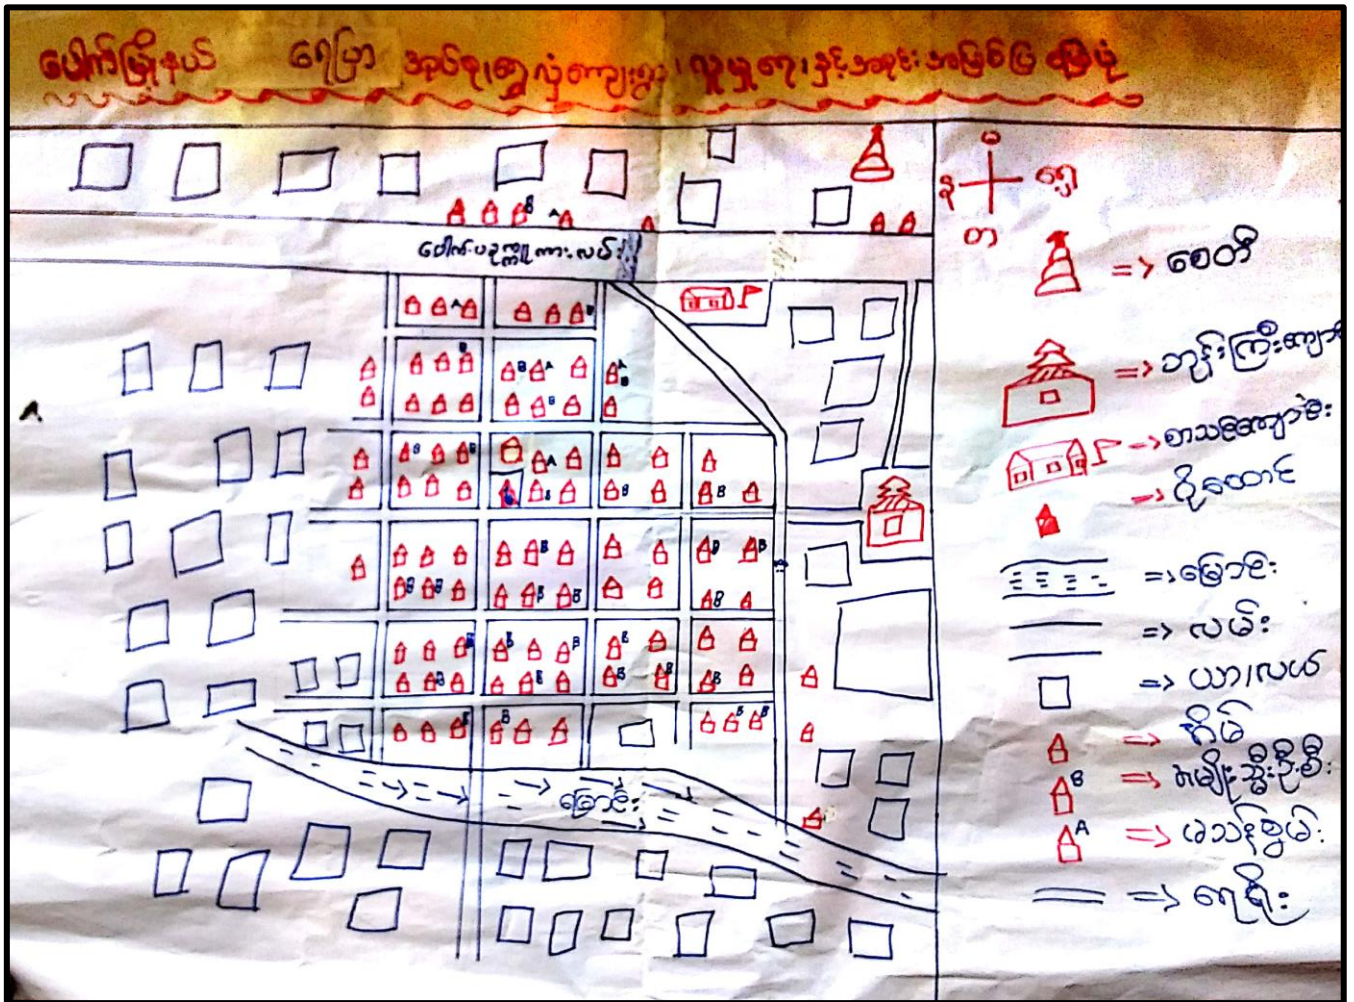 ပေါက်မြို့နယ် ရေပြာ အုပ်စု၊ရွှေလှံကျေးရွာ၊ လူမှုရေး၊နှင့်အရင်းအမြစ်ပြ မြေပုံ
ပေါက်-ပခုက္ကူ ကားလမ်း
မြောင်း
A
န
တ
=> စေတီ
=> ဘုန်းကြီးကျောင်း
=> စာသင်ကျောင်း
=> ဝိုထောင်
=> မြောင်း
=> လမ်း
=> ယာ၊လယ်
=> အိမ်
B => အမျိုးသမီးဦးစီး
A => မသန်စွမ်း
=> ရေရိုး